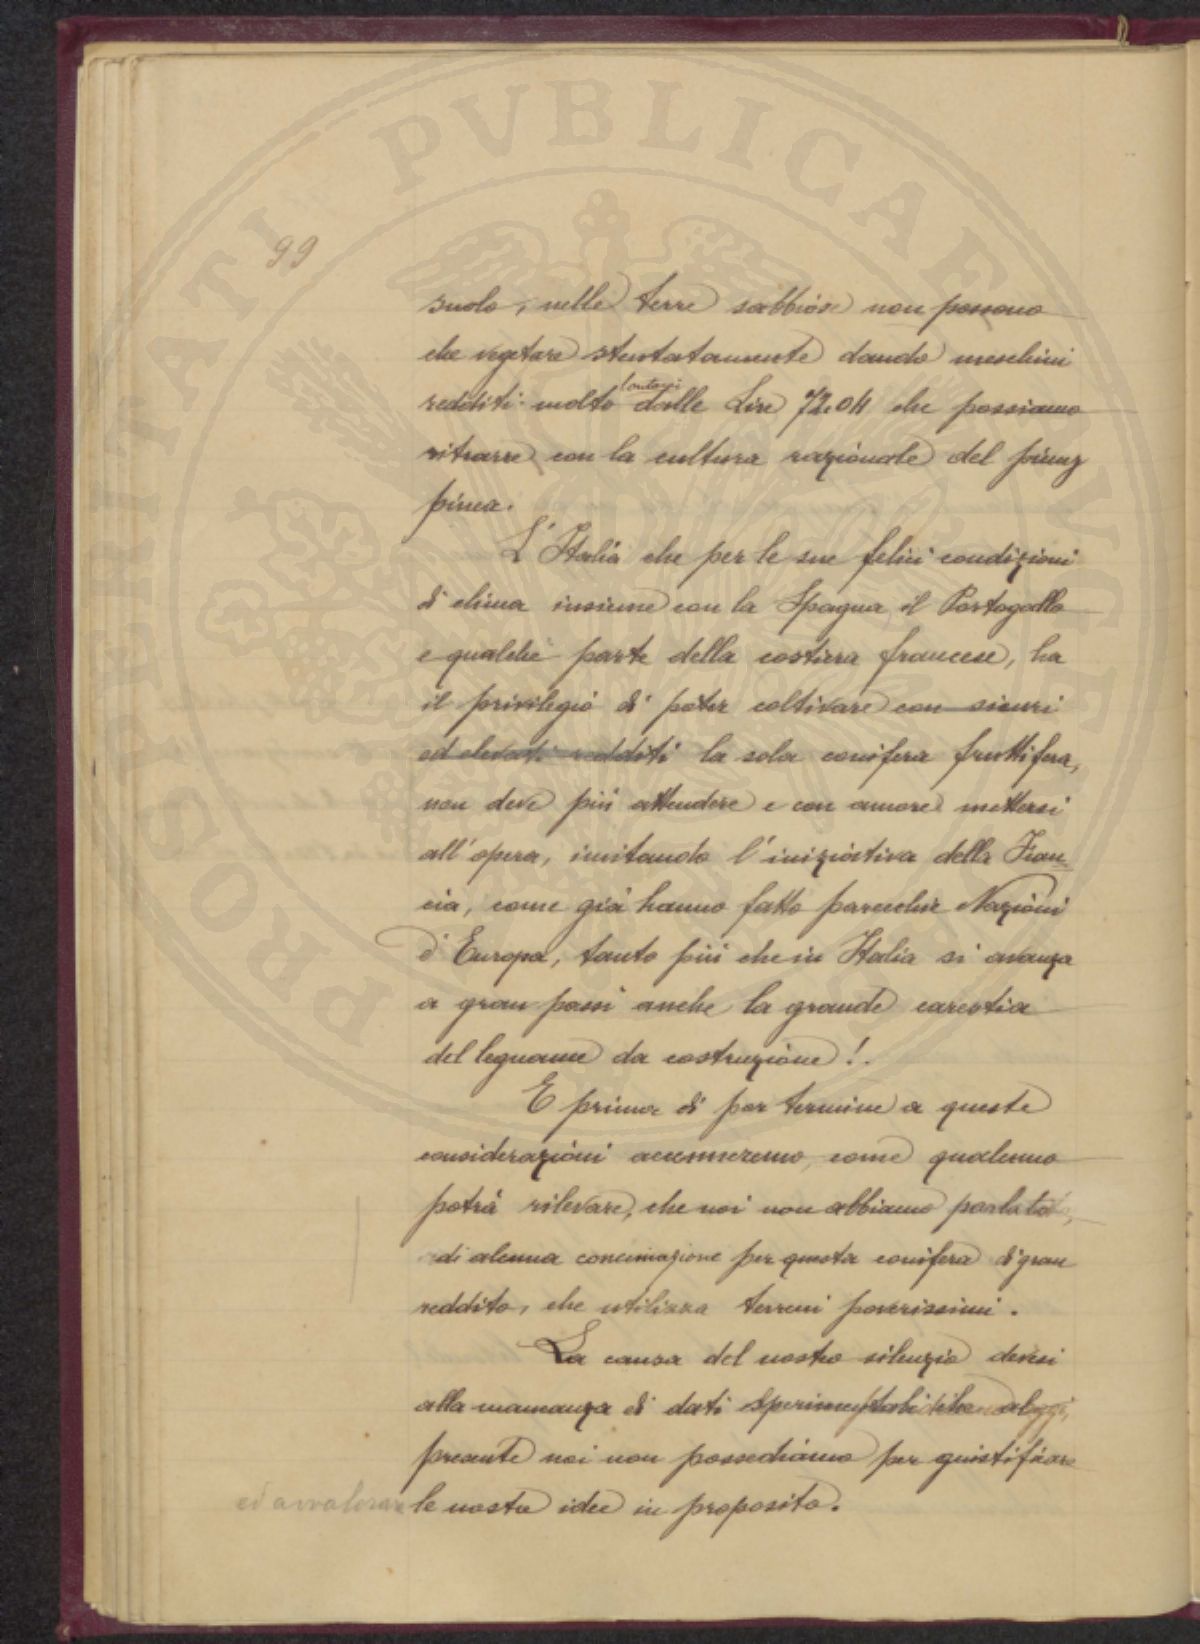 99
suolo, nelle terre sabbiose non possono
che vegetare stentatamente dando meschini
redditi molto lontani dalle Lire 72.04 che possiamo
ritrarre con la cultura razionale del pinus
pinea.
L'Italia che per le sue felici condizioni
di clima insieme con la Spagna, il Portogallo
e qualche parte della costiera francese, ha
il privilegio di poter coltivare con sicuri
ed elevati redditi la sola conifera fruttifera,
non deve più attendere e con amore mettersi
all'opera, imitando l'iniziativa della Fran=
cia, come già hanno fatto parecchie Nazioni
d'Europa, tanto più che in Italia si avanza
a gran passi anche la grande carestia
del legname da costruzione!.
E prima di por termine a queste
considerazioni accenneremo, come qualcuno
potrà rilevare, che noi non abbiamo parlato,
di alcuna concimazione per questa conifera di gran
reddito, che utilizza terreni poverissimi.
La causa del nostro silenzio devesi
alla mancanza di dati sperimentali che
presente noi non possediamo per giustificare
ed avvalorare le nostre idee in proposito.
PROSPERITATI PVBLICAE AVGENDAE